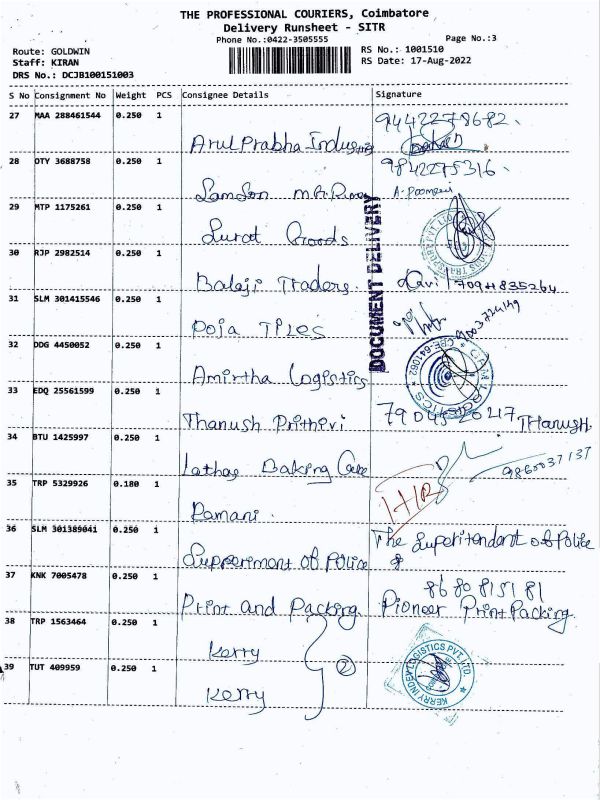 THE PROFESSIONAL COURIERS, Coimbatore
Delivery Runsheet - SITR
Phone No.:0422-3505555
Page No.:3
Route: GOLDWIN
RS No.: 1001510
Staff: KIRAN
RS Date: 17-Aug-2022
DRS No.: DCJB100151003
S No Consignment No Weight PCS Consignee Details Signature
27 MAA 288461544 0.250 1 9442278682.
Arul Prabha
28 OTY 3688758 0.250 1 9842275316.
29 MTP 1175261 0.250 1
Surat Goods
30 RJP 2982514 0.250 1
Balaji Traders.
DOCUMENT DELIVERY
31 SLM 301415546 0.250 1
Poja Tiles
32 DDG 4450052 0.250 1
Amirtha Logistics
33 EDQ 25561599 0.250 1
Thanush Prithivi THanush.
34 BTU 1425997 0.250 1
Baking
35 TRP 5329926 0.180 1
Ramani.
36 SLM 301389041 0.250 1 The Superitendent of Police
of Police
37 KNK 7005478 0.250 1 8680815181
Print and Packing Pioneer Print Packing.
38 TRP 1563464 0.250 1
Kerry
2
39 TUT 409959 0.250 1
Kerry
KERRY INDEV LOGISTICS PVT. LTD.